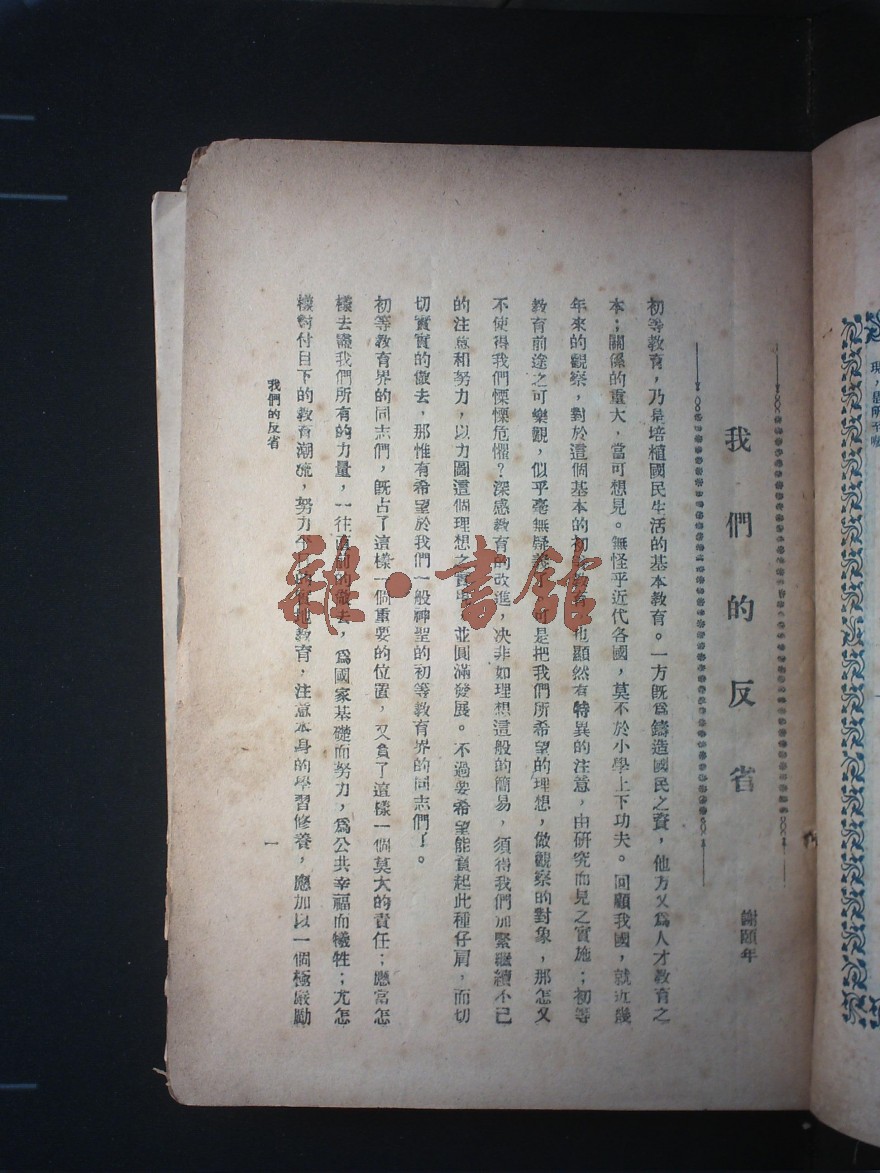 我們的反省
謝頤年
初等教育，乃是培植國民生活的基本教育。一方既爲鑄造國民之資，他方又爲人才教育之
本；關係的重大，當可想見。無怪乎近代各國，莫不於小學上下功夫。回顧我國，就近幾
年來的觀察，對於這個基本的初教育也顯然有特異的注意，由研究而見之實施；初等
教育前途之可樂觀，似乎毫無疑可是把我們所希望的理想，做觀察的對象，那怎又
不使得我們慄慄危懼？深感教育的改進，决非如理想這般的簡易，須得我們加緊繼續不已
的注意和努力，以力圖這個理想之實並圓滿發展。不過要希望能負起此種仔肩，而切
切實實的做去，那惟有希望於我們一般神聖的初等教育界的同志們了。
初等教育界的同志們，旣占了這樣一個重要的位置，又負了這樣一個莫大的責任；應當怎
樣去盡我們所有的力量，一往前的做去，爲國家基礎而努力，爲公共幸福而犧牲；尤怎
樣對付目下的教育潮流，努力教育，注意本身的學習修養，應加以一個極嚴勵
我們的反省
一
雜·書館